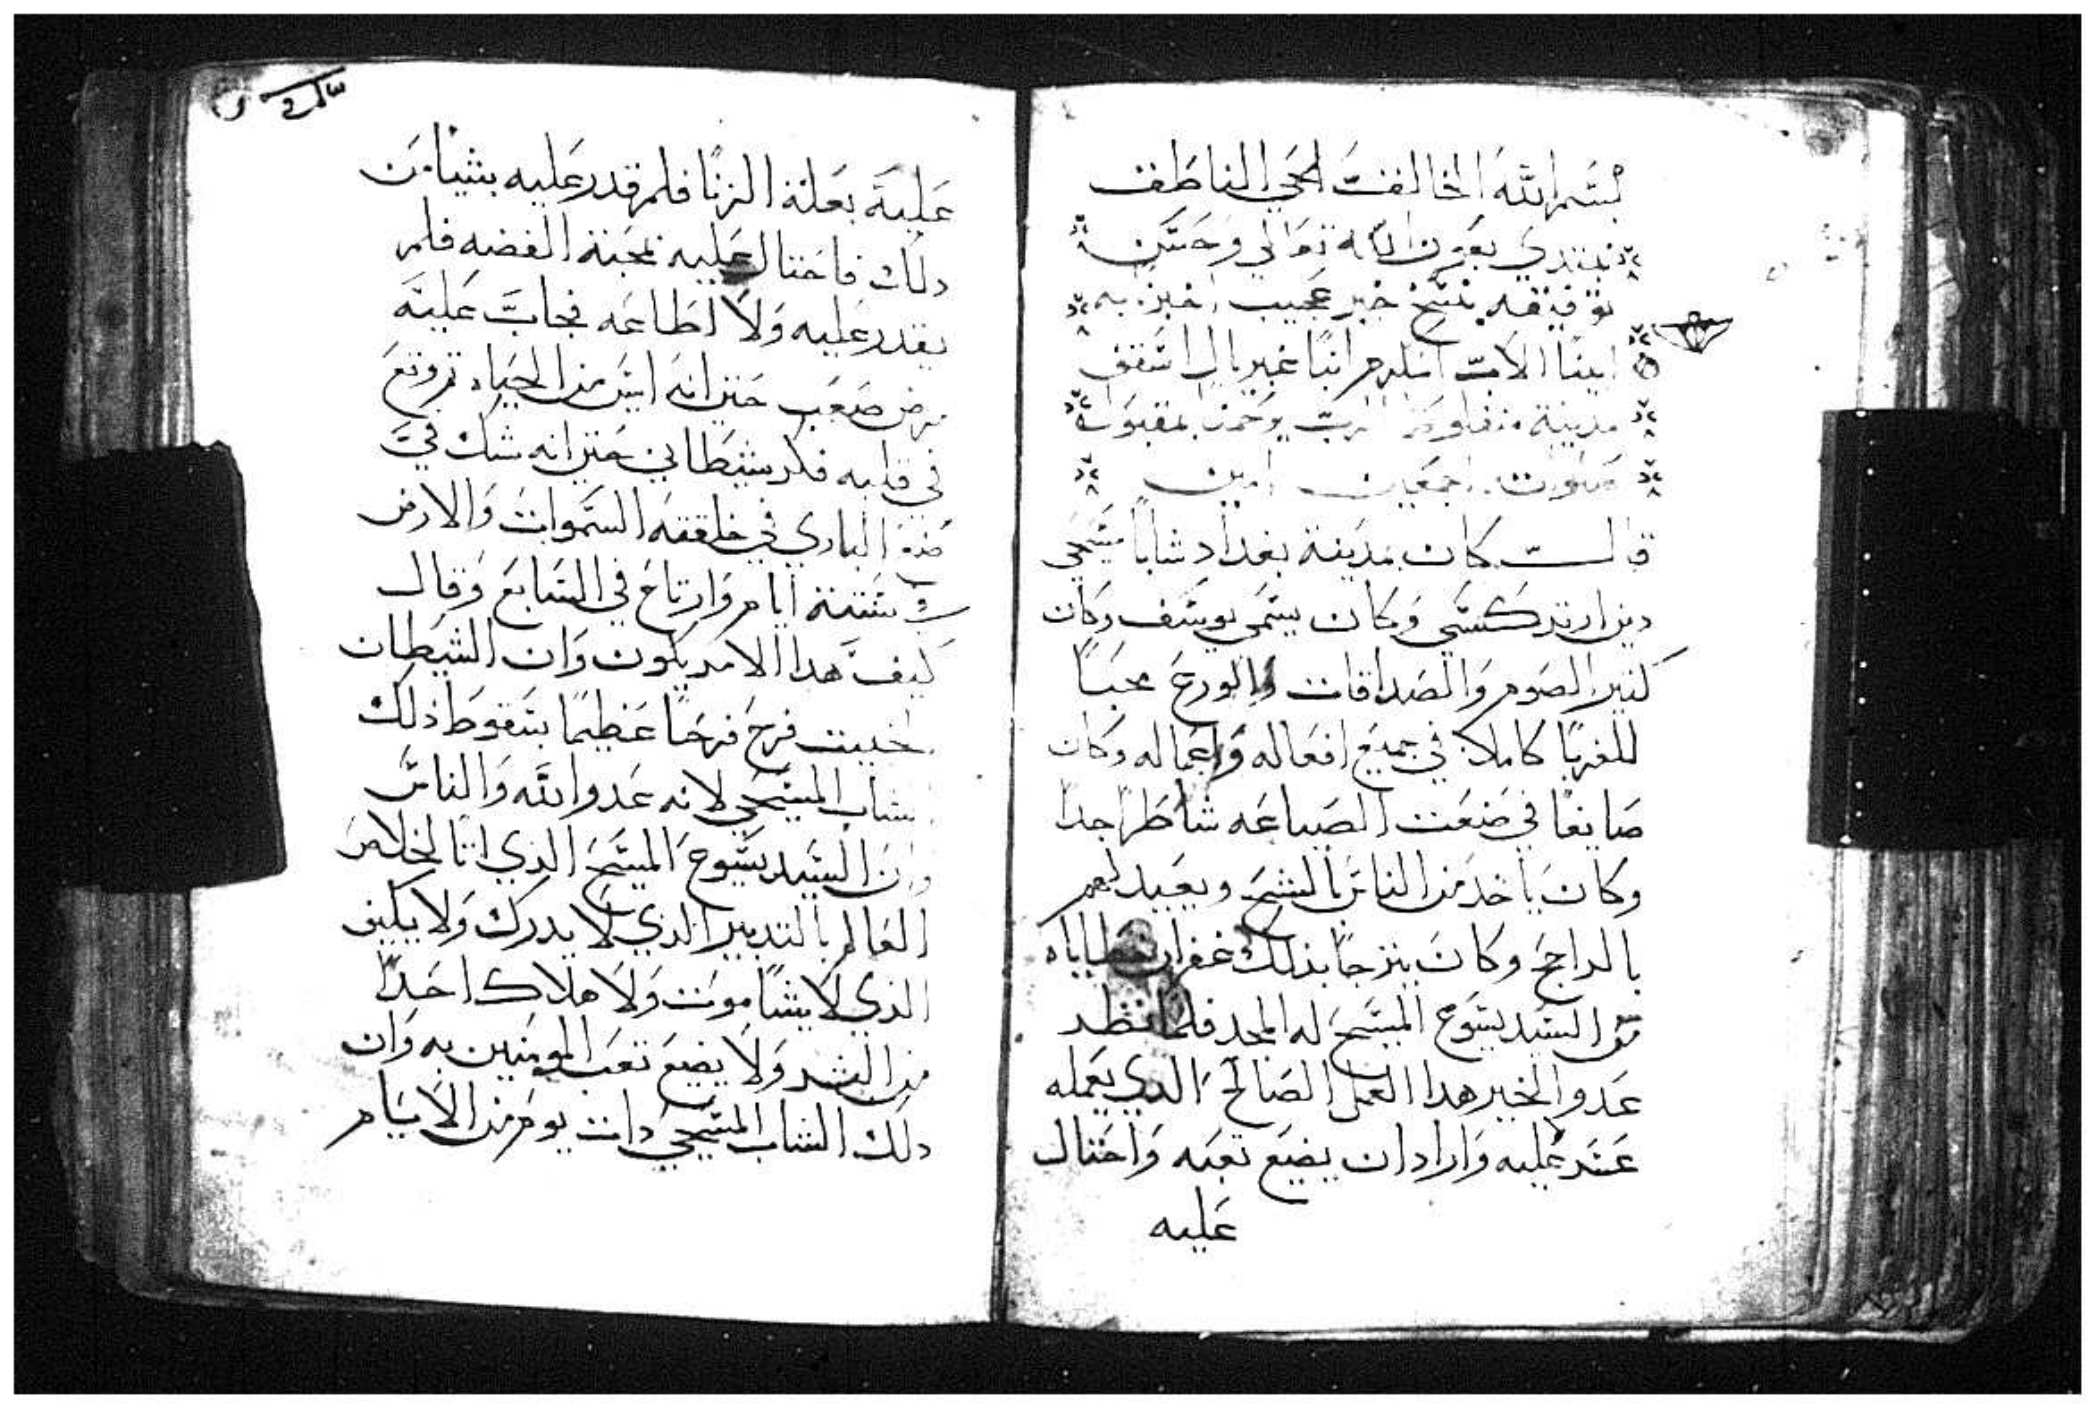 بسم الله الخالق الحي الناطق
نبتدي بعون الله تعالي وحسن
توفيقه بنسخ خبر عجيب اخبر به
ابينا الاب المكرم انبا غبريال اسقف
مدينة منفلوط الرب يرحمنا بمقبول
صلواته اجمعين امين
قال كان بمدينة بغداد شابا مسيحي
دين ارتدكسي وكان يسمي يوسف وكان
كتير الصوم والصداقات والورع محبا
للغربا كاملا في جميع افعاله واعماله وكان
صايغا في صنعت الصياغه شاطرا جدا
وكان ياخد من الناس بالشح ويعيد لهم
بالراجح وكان يترجا بذلك غفران خطاياه
من السيد يسوع المسيح له المجد فلما نظر
عدو الخير هدا العمل الصالح الدي يعمله
حسد عليه واراد ان يضيع تعبه واحتال
عليه
عليه بعلة الزنا فلم قدر عليه بشيا من
دلك فاحتال عليه بمحبة الفضه فلم
يقدر عليه ولا اطاعه فجاب عليه
مرض صعب حتي انه ايس من الحياه تم وقع
في قلبه فكر شيطاني حتي انه شك في
البارى في خلقته السموات والارض
في ستة ايام وارتاح في السابع وقال
كيف هدا الامر يكون وان الشيطان
الخبيت فرح فرحا عظيما بسقوط ذلك
الشاب المسيحي لانه عدو الله والناس
وان السيد يسوع المسيح الذي اتا لخلاص
العالم بالتدبير الذي لا يدرك ولا يكيف
الذي لا يشا موت ولا هلاك احدا
من البشر ولا يضيع تعب المومنين به وان
دلك الشاب المسيحي دات يوم من الايام